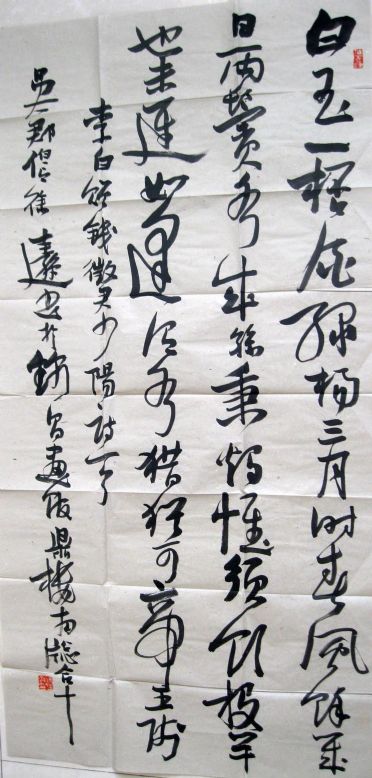 白玉一杯酒绿楊三月时春風餘幾
日兩鬢各成絲秉燭惟須飲投竿
也未遲如逢渭水猎猶可帝王師
李白贈錢徵君少陽詩一首
吴郡 達书於